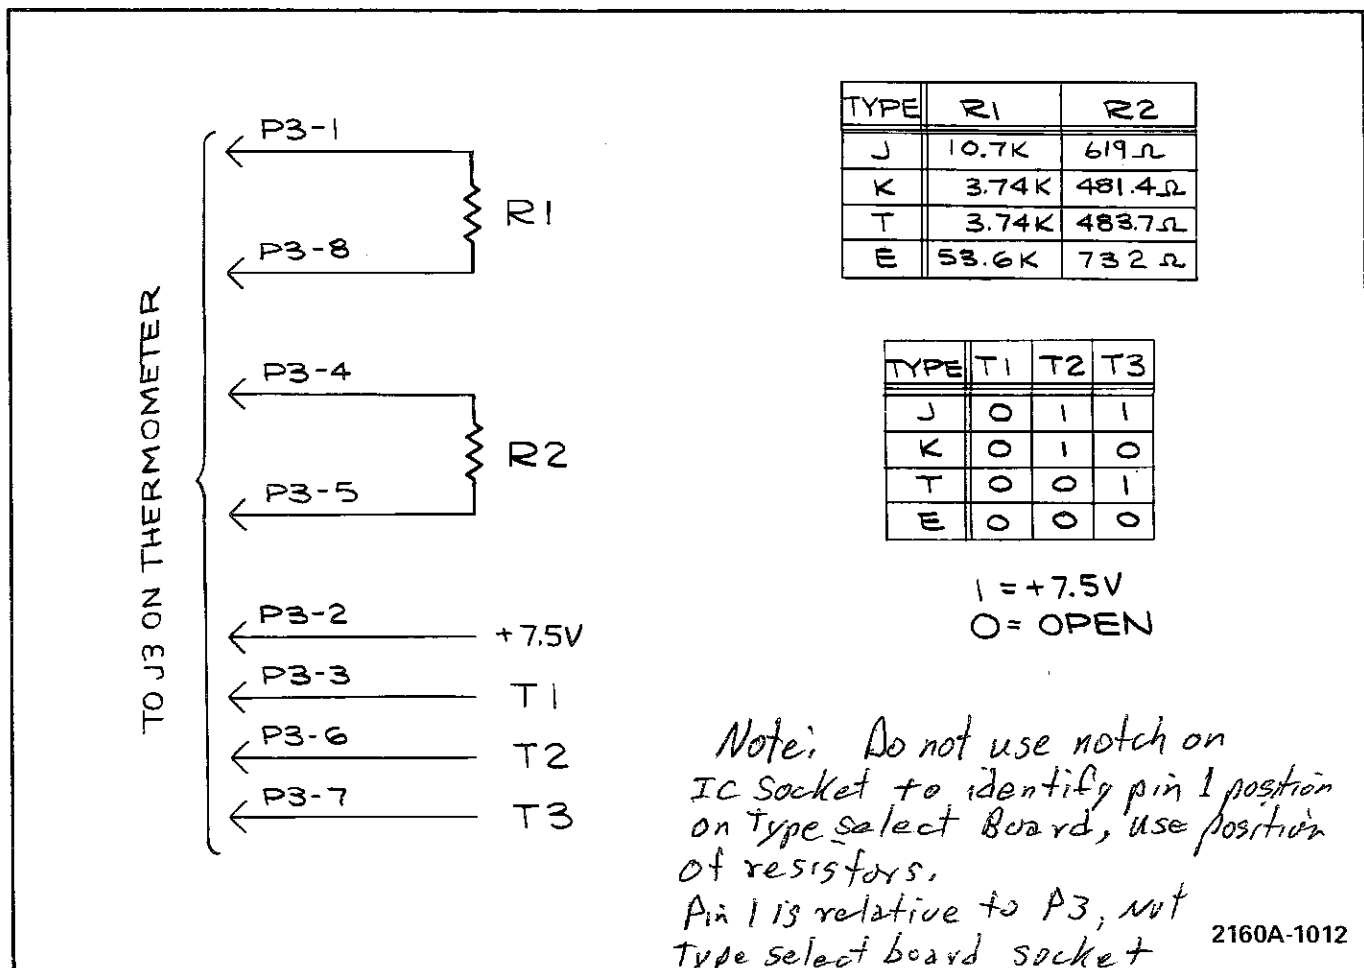 TO J3 ON THERMOMETER
P3-1
R1
P3-8
P3-4
R2
P3-5
P3-2
+7.5V
P3-3
T1
P3-6
T2
P3-7
T3
TYPE R1 R2
J 10.7K 619Ω
K 3.74K 481.4Ω
T 3.74K 483.7Ω
E 53.6K 732Ω
TYPE T1 T2 T3
J 0 1 1
K 0 1 0
T 0 0 1
E 0 0 0
1 = +7.5V
0 = OPEN
Note: Do not use notch on
IC Socket to identify pin 1 position
on Type Select Board, use position
of resistors.
Pin 1 is relative to P3, not
Type select board socket
2160A-1012